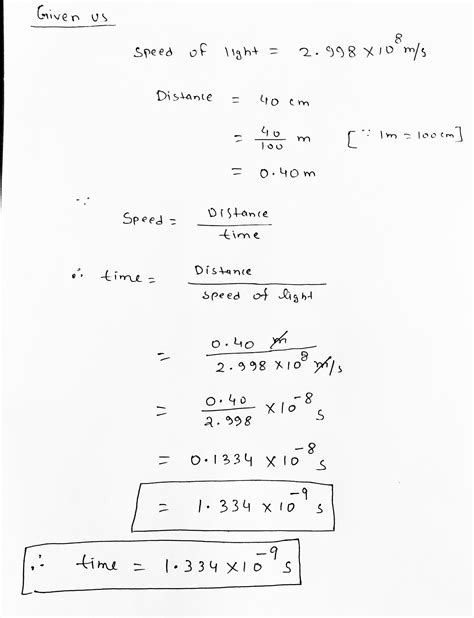 Given us
Speed of light = 2.998 × 10⁸ m/s
Distance = 40 cm
= 40/100 m [∵ 1m = 100cm]
= 0.40 m
∵
Speed = Distance/time
∴ time = Distance/speed of light
= 0.40 m/2.998 × 10⁸ m/s
= 0.40/2.998 × 10⁻⁸ s
= 0.1334 × 10⁻⁸ s
= 1.334 × 10⁻⁹ s
∴ time = 1.334 × 10⁻⁹ s